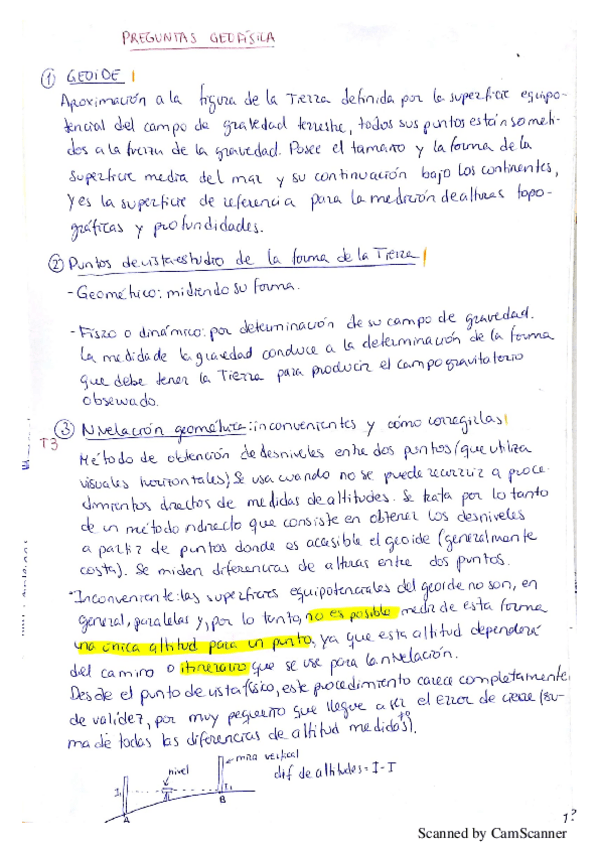 PREGUNTAS GEOFÍSICA
① GEOIDE
Aproximación a la figura de la Tierra definida por la superficie equipo-
tencial del campo de gravedad terrestre, todos sus puntos están someti-
dos a la fuerza de la gravedad. Posee el tamaño y la forma de la
superficie media del mar y su continuación bajo los continentes,
y es la superficie de referencia para la medición de alturas topo-
gráficas y profundidades.
② Puntos de vista estudio de la forma de la Tierra
- Geométrico: midiendo su forma.
- Físico o dinámico: por determinación de su campo de gravedad.
La medida de la gravedad conduce a la determinación de la forma
que debe tener la Tierra para producir el campo gravitatorio
observado.
③ Nivelación geométrica: inconvenientes y cómo corregirlas
T3
Método de obtención de desniveles entre dos puntos (que utiliza
visuales horizontales). Se usa cuando no se puede recurrir a proce-
dimientos directos de medidas de altitudes. Se trata por lo tanto
de un método indirecto que consiste en obtener los desniveles
a partir de puntos donde es accesible el geoide (generalmente
costa). Se miden diferencias de alturas entre dos puntos.
*Inconveniente: las superficies equipotenciales del geoide no son, en
general, paralelas y, por lo tanto, no es posible medir de esta forma
una única altitud para un punto, ya que esta altitud dependerá
del camino o itinerario que se use para la nivelación.
Desde el punto de vista físico, este procedimiento carece completamente
de validez, por muy pequeño que llegue a ser el error de cierre (su-
ma de todas las diferencias de altitud medidas).
mira vertical
nivel
dif de altitudes = I - I
A
B
1?
Scanned by CamScanner